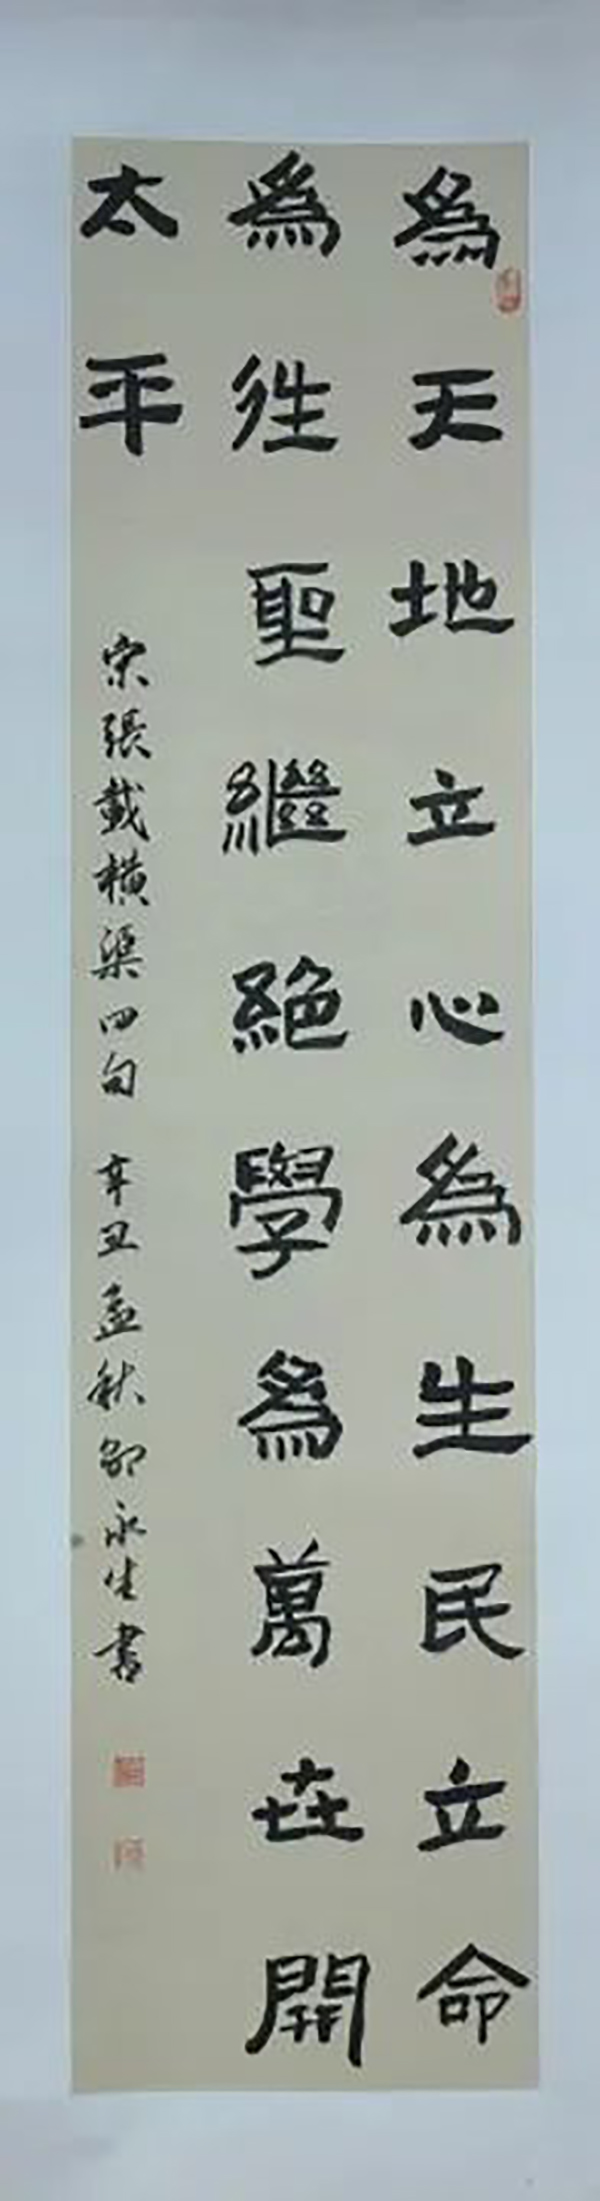 為天地立心為生民立命
為往聖繼絕學為萬世開
太平
宋張載橫渠四句 辛丑孟秋邵永生書